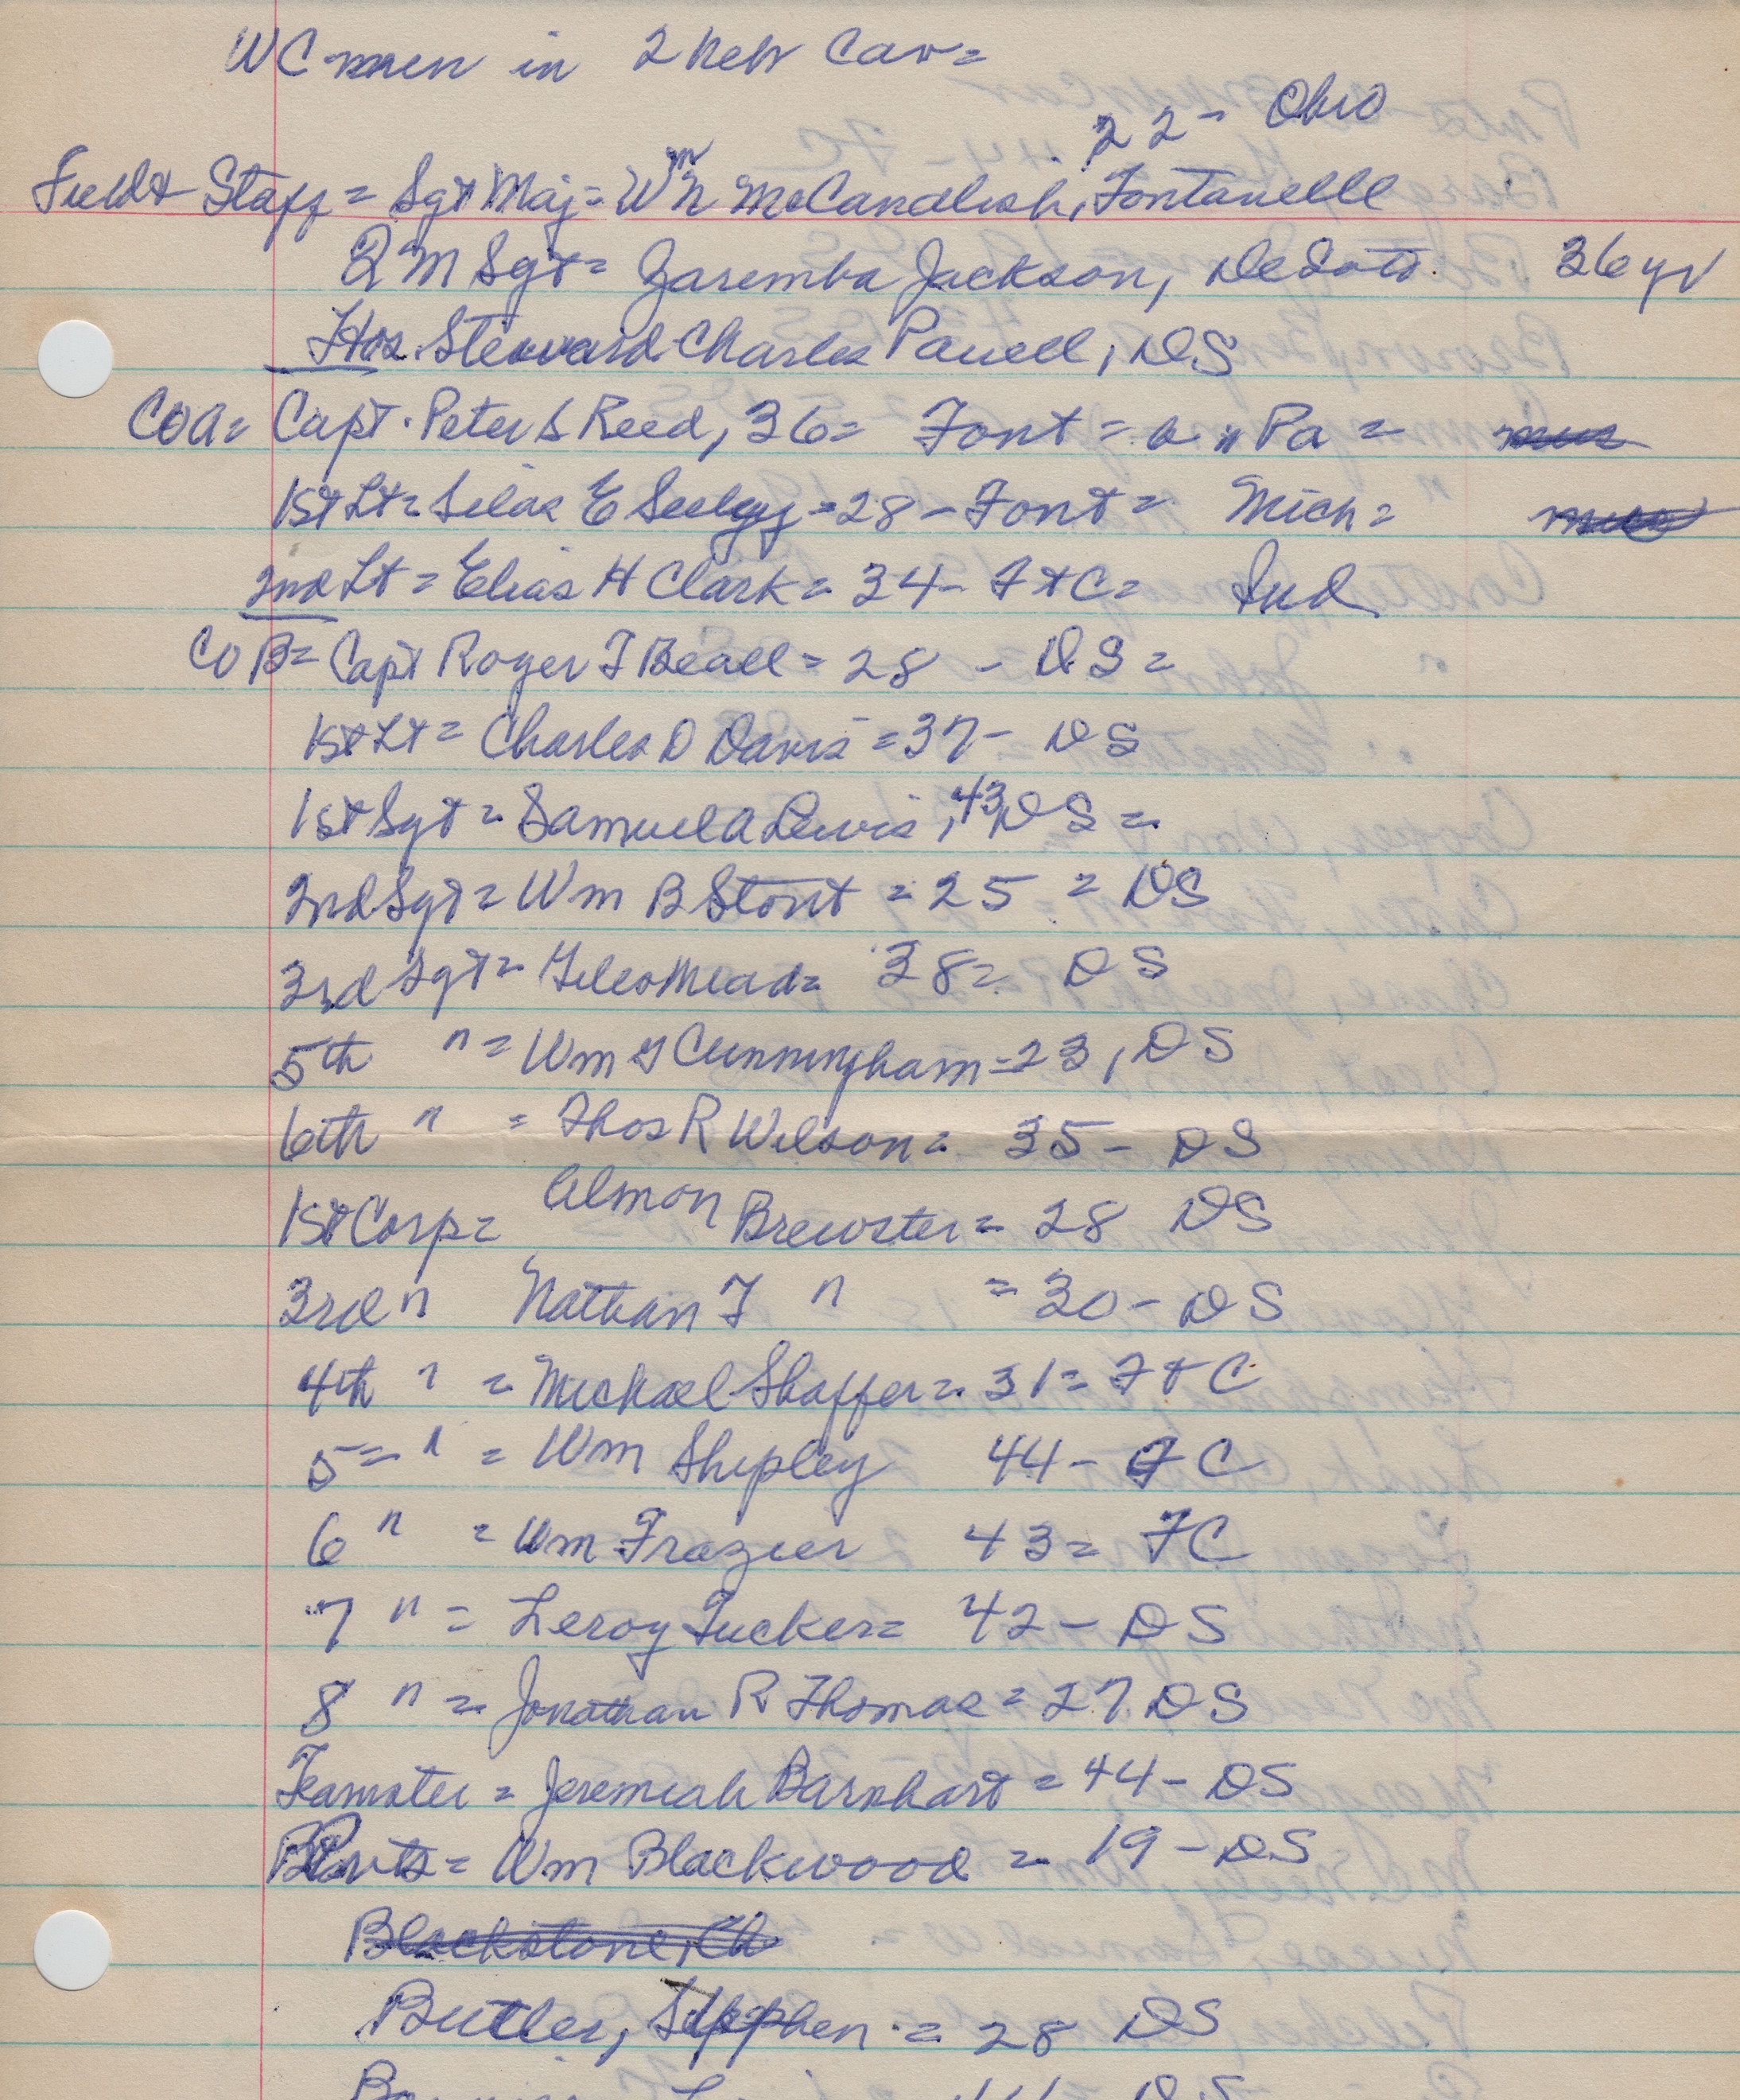 WC men in 2 Neb Cav =
22 - Ohio
Field & Staff = Sgt Maj = Wm N McCandlish, Fontanelle
QM Sgt = Zaremba Jackson, DeSoto. 36 yr
Hos. Steward Charles Powell, DS
Co A = Capt. Peter S Reed, 36 = Font = a " Pa =
1st Lt = Silas E Seeley = 28 - Font = Mich =
2nd Lt = Elias H Clark = 34 - Ft C = Ind
Co B = Capt Roger T Beall = 28 - DS =
1st Lt = Charles D Davis = 37 - DS
1st Sgt = Samuel A Lewis, 43, DS =
2nd Sgt = Wm B Stout = 25 = DS
3rd Sgt = Giles Mead = 38 = DS
5th " = Wm G Cunningham - 23, DS
6th " = Thos R Wilson = 35 - DS
1st Corp = Almon Brewster = 28 DS
3rd " Nathan T " = 30 - DS
4th " = Michael Shaffer = 31 = Ft C
5 = " = Wm Shipley 44 - FC
6 " = Wm Frazier 43 = FC
7 " = Leroy Tucker = 42 - DS
8 " = Jonathan R Thomas = 27 DS
Teamster = Jeremiah Barnhart = 44 - DS
Pvts = Wm Blackwood = 19 - DS
Blackstone, Ch
Butler, Stephen = 28 DS